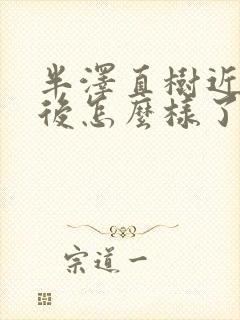 半澤直樹近
後怎麼樣了
宗道一